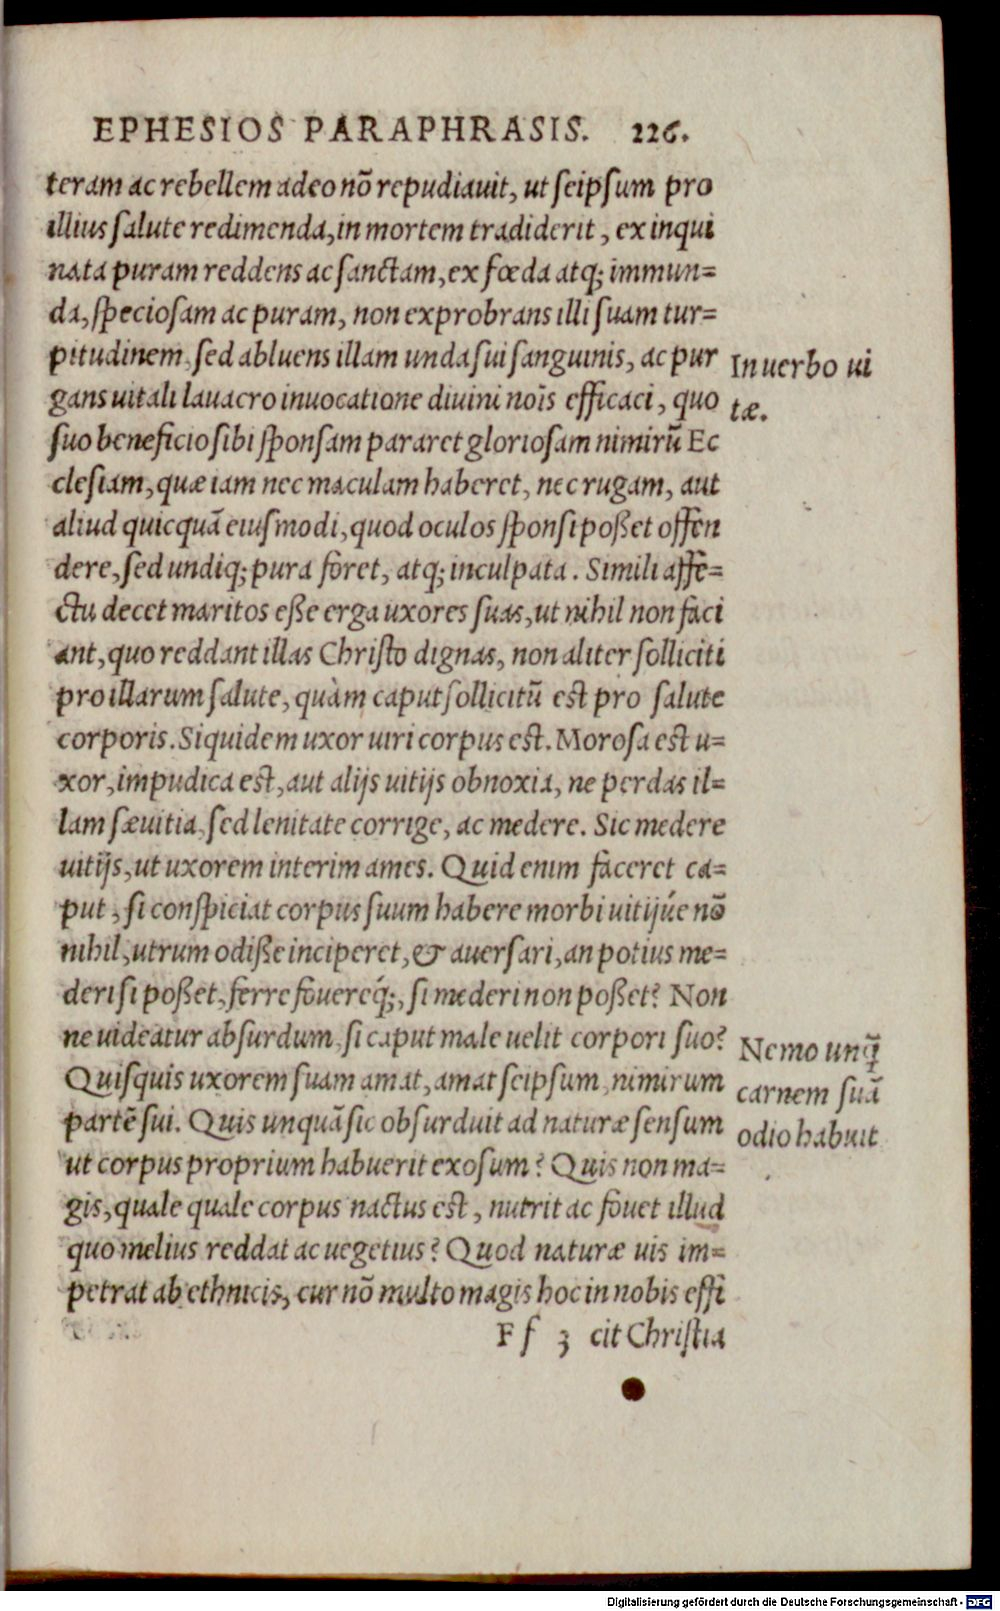 EPHESIOS PARAPHRASIS. 226.
teram ac rebellem adeo nō repudiauit, ut seipsum pro
illius salute redimenda, in mortem tradiderit, ex inqui
nata puram reddens ac sanctam, ex fœda atq; immun=
da, speciosam ac puram, non exprobrans illi suam tur=
pitudinem, sed abluens illam unda sui sanguinis, ac pur
gans uitali lauacro inuocatione diuini nois efficaci, quo
suo beneficio sibi sponsam pararet gloriosam nimirū Ec
clesiam, quæ iam nec maculam haberet, nec rugam, aut
aliud quicquā eiusmodi, quod oculos sponsi poßet offen
dere, sed undiq; pura foret, atq; inculpata. Simili affe=
ctu decet maritos eße erga uxores suas, ut nihil non faci
ant, quo reddant illas Christo dignas, non aliter solliciti
pro illarum salute, quàm caput sollicitū est pro salute
corporis. Siquidem uxor uiri corpus est. Morosa est u=
xor, impudica est, aut alijs uitijs obnoxia, ne perdas il=
lam sæuitia, sed lenitate corrige, ac medere. Sic medere
uitijs, ut uxorem interim ames. Quid enim faceret ca=
put, si conspiciat corpus suum habere morbi uitijúe nō
nihil, utrum odiße inciperet, & auersari, an potius me=
deri si poßet, ferre fouereq́;, si mederi non poßet? Non
ne uideatur absurdum, si caput male uelit corpori suo?
Quisquis uxorem suam amat, amat seipsum, nimirum
partē sui. Quis unquā sic obsurduit ad naturæ sensum
ut corpus proprium habuerit exosum? Quis non ma=
gis, quale quale corpus nactus est, nutrit ac fouet illud
quo melius reddat ac uegetius? Quod naturæ uis im=
petrat ab ethnicis, cur nō multo magis hoc in nobis effi
Ff 3 cit Christia
In uerbo ui
tæ.
Nemo unq̄
carnem suā
odio habuit
Digitalisierung gefördert durch die Deutsche Forschungsgemeinschaft - DFG